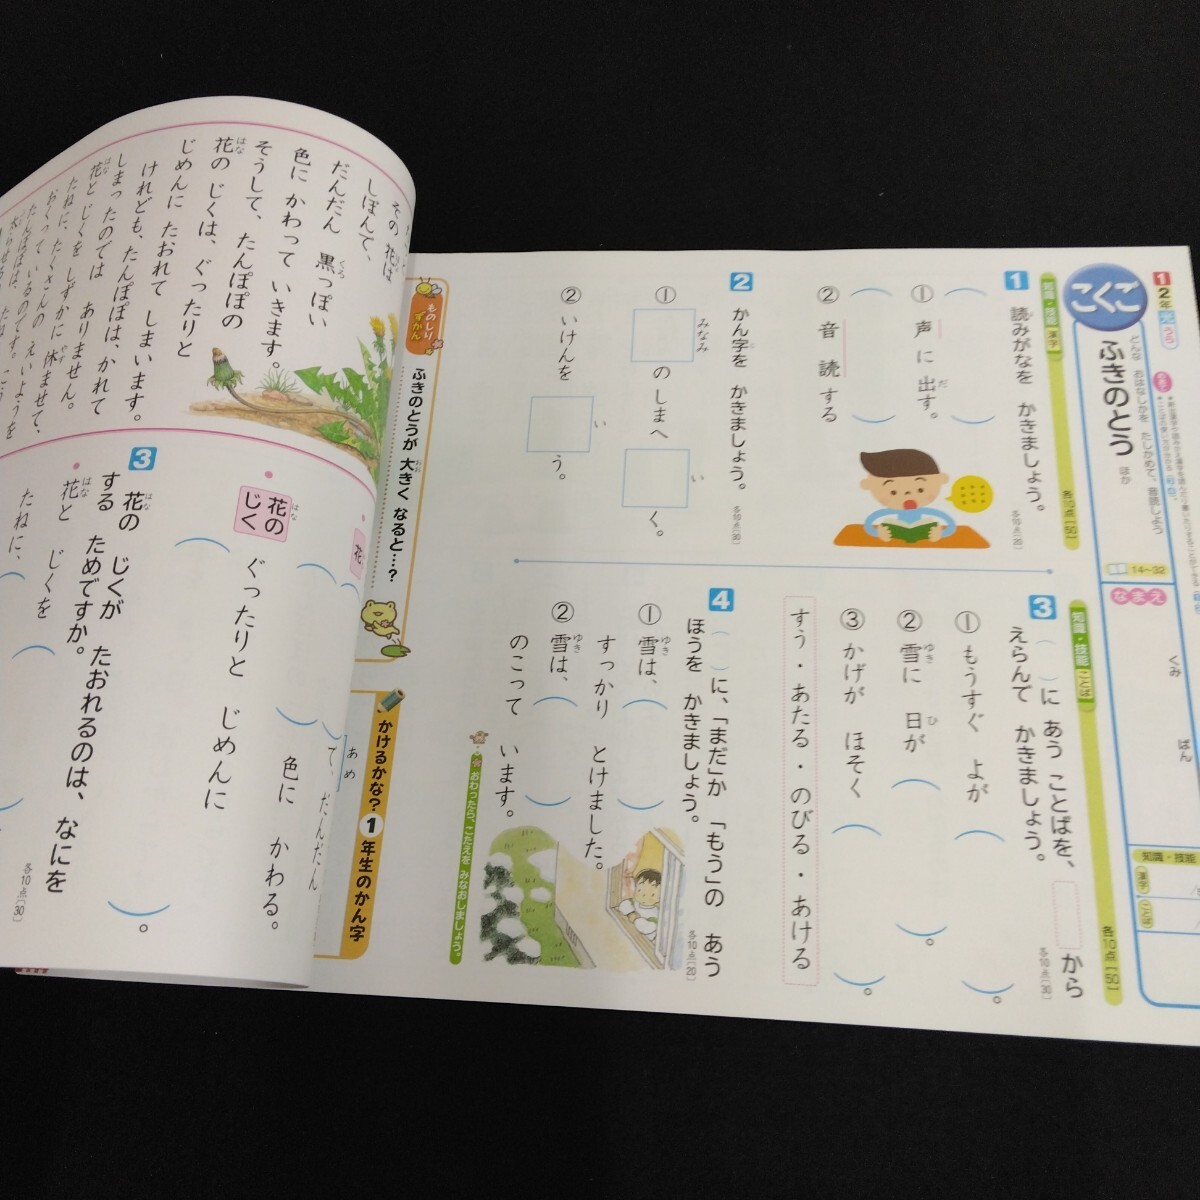 1 2年 光 うら
こくご
どんな おはなしかを たしかめて、音読しよう
ふきのとう ほか
14〜32
なまえ
くみ
ばん
知識・技能
漢字
ことば
知識・技能 漢字
各10点[50]
1 読みがなを かきましょう。
各10点[20]
① 声に 出す。
だ
② 音読する
2 かん字を かきましょう。
各10点[30]
① みなみ
のしまへ
い
く。
② いけんを
い
う。
知識・技能 ことば
各10点[50]
3 ( )に あう ことばを、 から
えらんで かきましょう。
各10点[30]
① もうすぐ よが( )。
② 雪に 日が( )。
ゆき ひ
③ かげが ほそく( )。
すう・あたる・のびる・あける
4 ( )に、「まだ」か 「もう」の あう
ほうを かきましょう。
各10点[20]
① 雪は、( )
ゆき
すっかり とけました。
② 雪は、( )
ゆき
のこって います。
おわったら、こたえを みなおしましょう。
ものしりずかん
ふきのとうが 大きく なると…?
おお
かけるかな? 1 年生のかん字
あめ
その 花は
しぼんで、
だんだん 黒っぽい
くろ
色に かわって いきます。
そうして、たんぽぽの
花の じくは、ぐったりと
はな
じめんに たおれて しまいます。
けれども、たんぽぽは、かれて
しまったのでは ありません。
花と じくを しずかに 休ませて、
はな やす
たねに、たくさんの えいようを
おくって いるのです。こう
たんぽぽは、
花
( )て、だんだん
色に かわる。
花の じく
はな
( )ぐったりと じめんに
( )。
3 花の じくが たおれるのは、なにを
はな
する ためですか。
各10点[30]
花と じくを( )
はな
たねに、( )